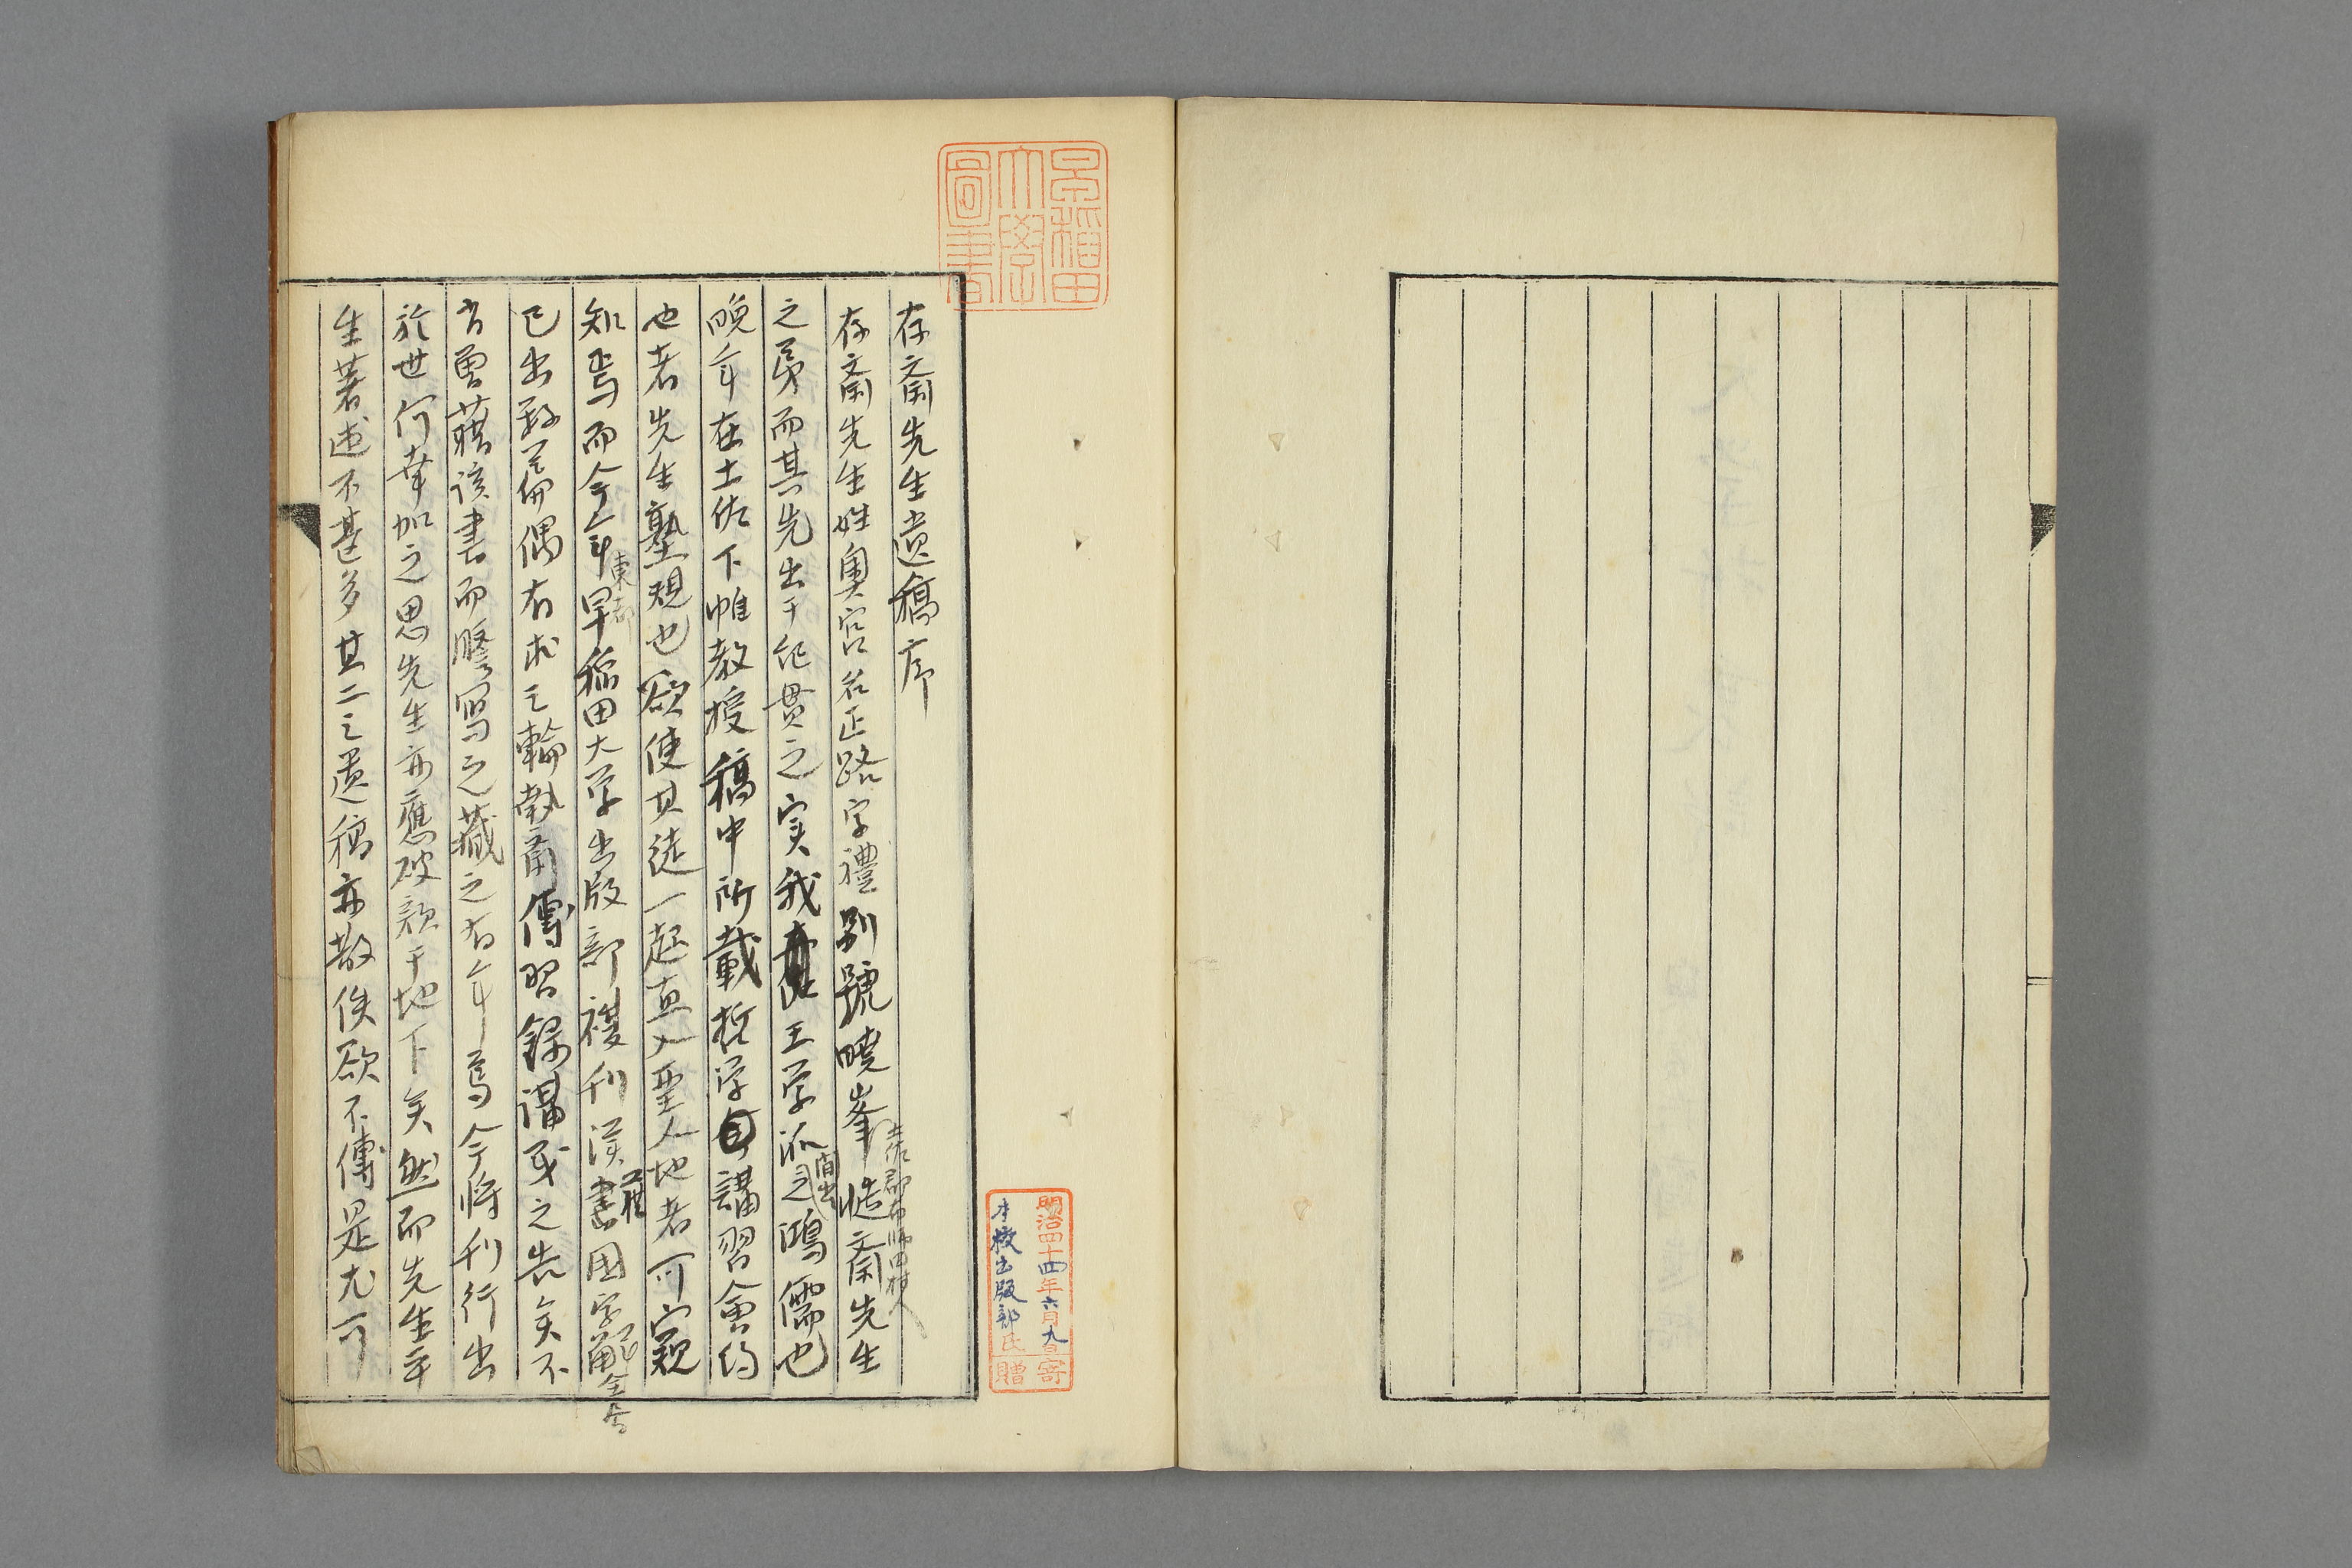 存齋先生遺稿序
存齋先生姓奧宮名正路字禮別號曉峯慥齋先生
土佐郡布師田村人
之弟而其先出于紀貫之実我王学派之間出鴻儒也
晩年在土佐下帷教授稿中所載哲学講習會約
也者先生塾規也欲使其徒一起直入聖人地者可窺
知焉而今年東都早稲田大学出版部複刊漢籍國字解全書
已出數卷偶有求之輪執齋傳習錄講義之告矣不
肖曽藉該書而謄寫之藏之有年焉今将刊行出
於世何幸加之思先生亦應破顔于地下矣然而先生平
生著述不甚多其二三遺稿亦散佚欲不傳是尤可
早稲田大學圖書
明治四十四年六月九日寄贈
本校出版部氏